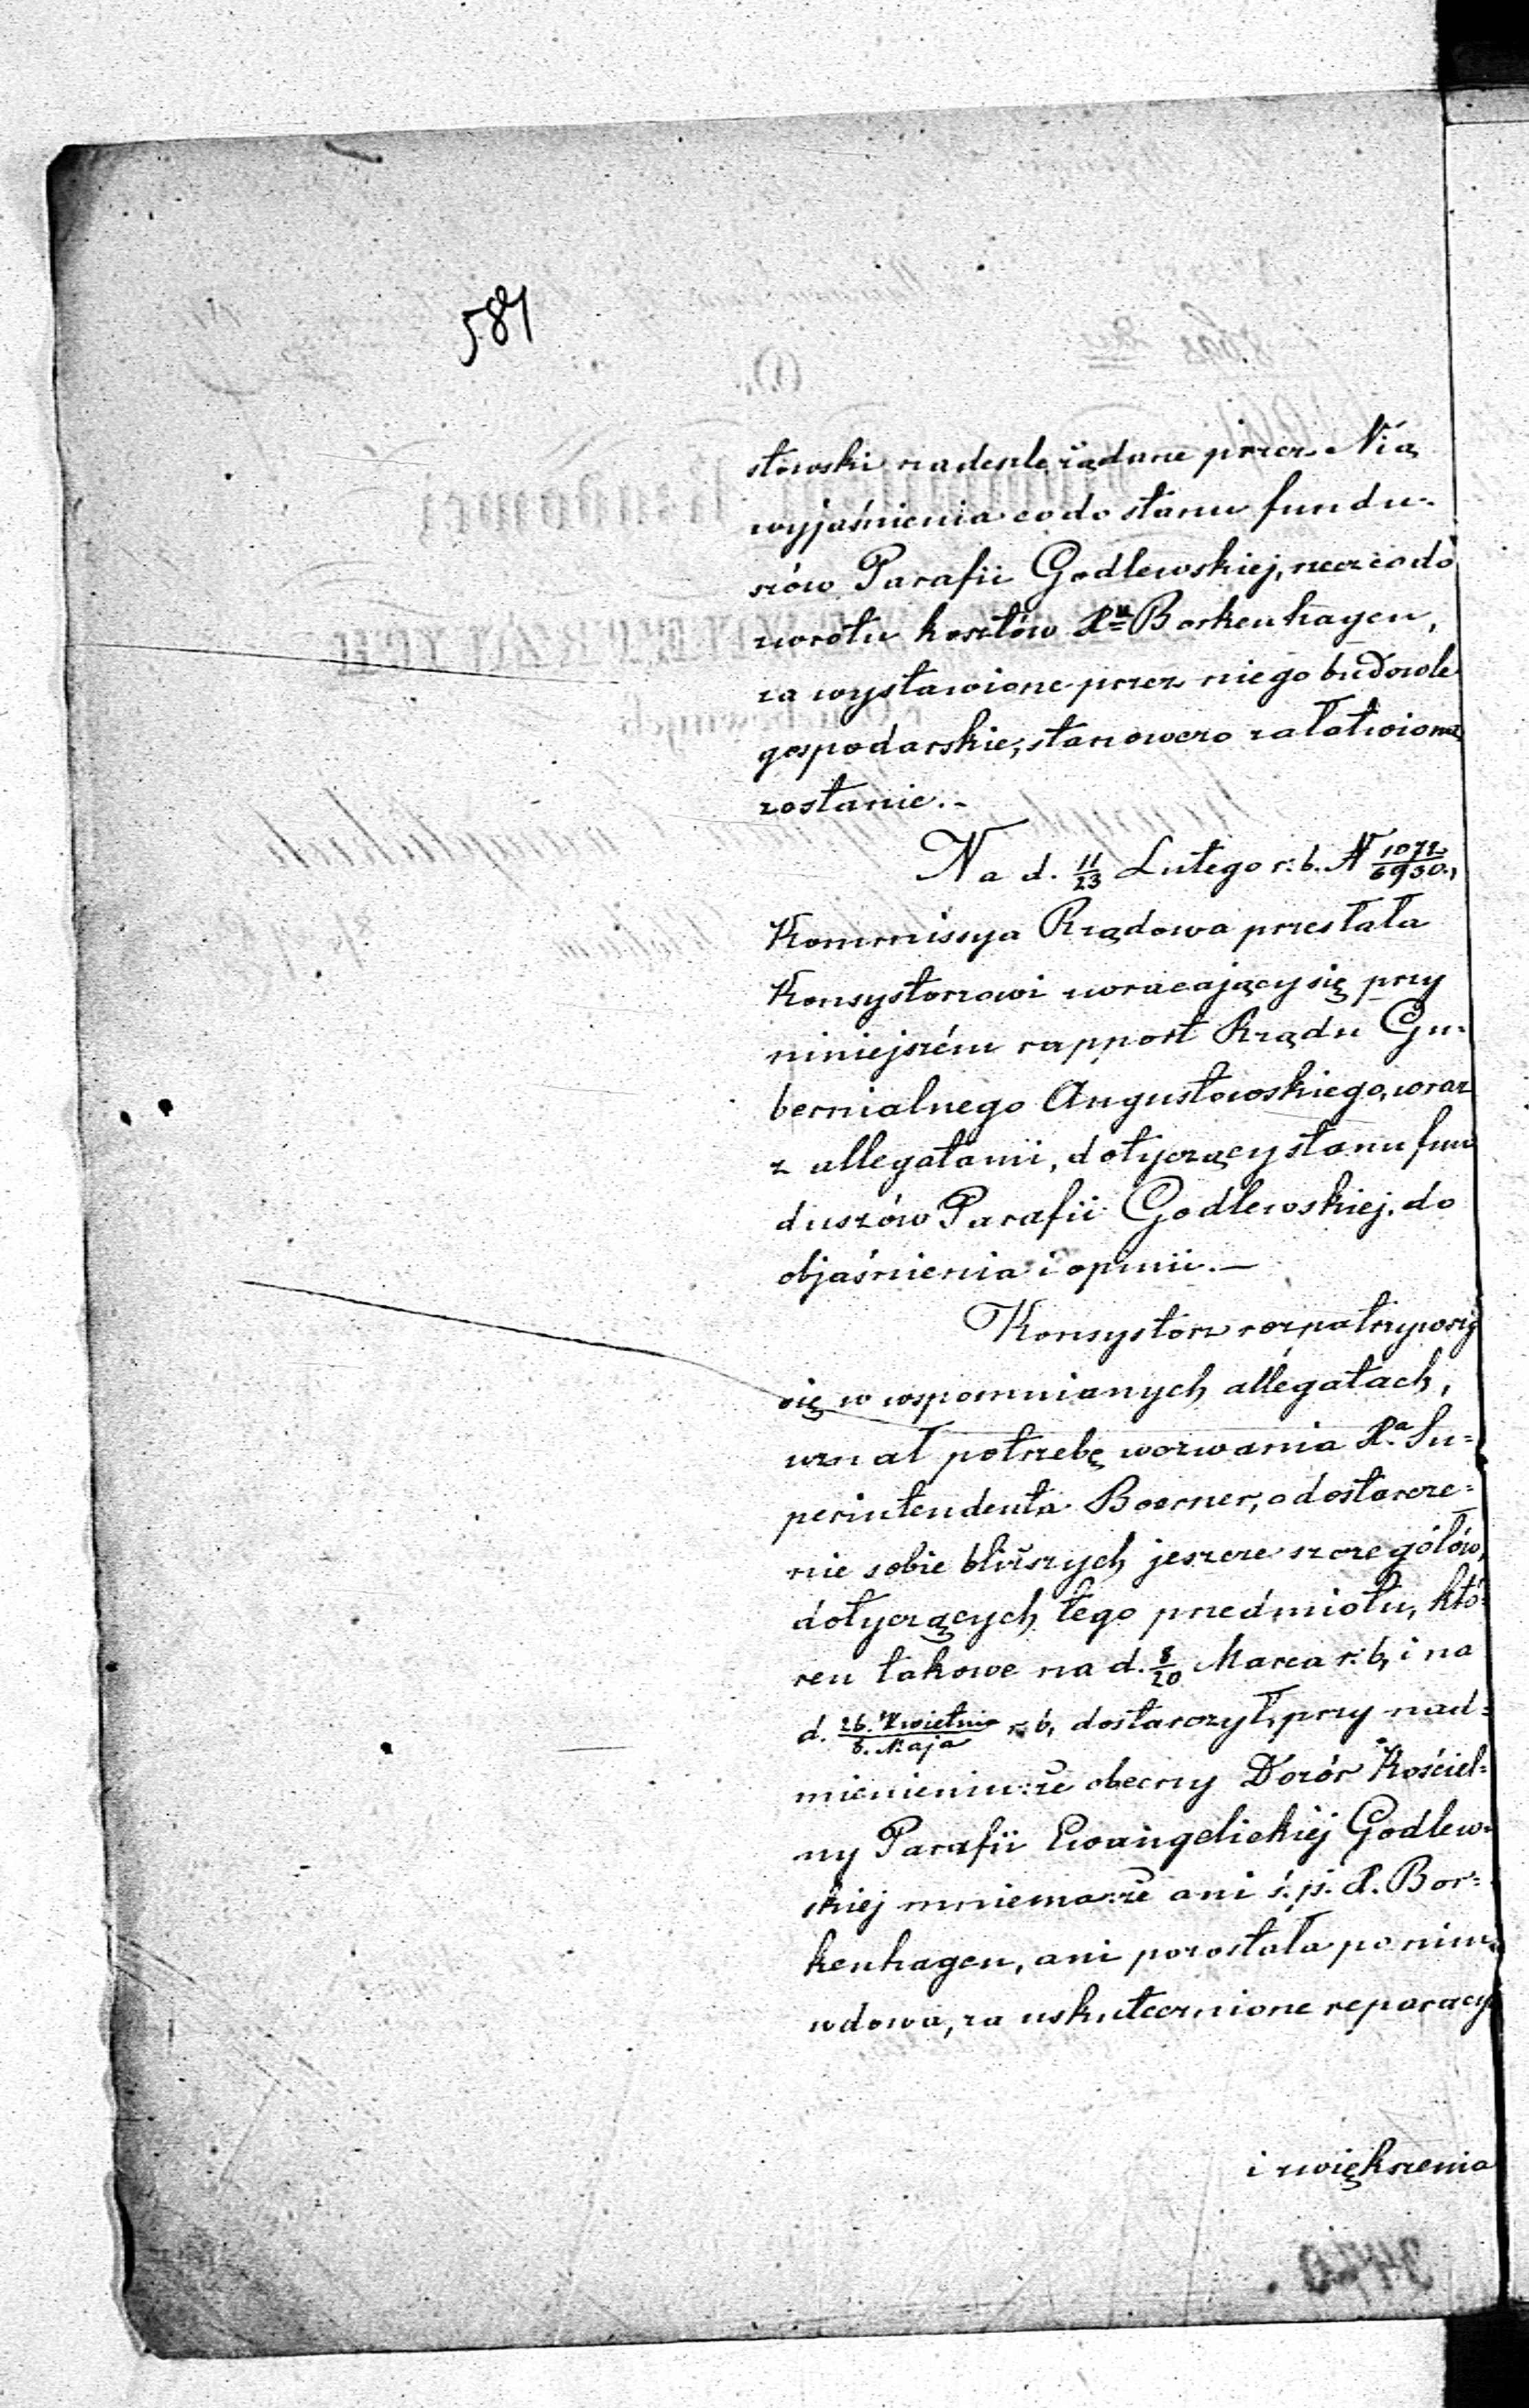 584
słowski nadeszle żądane przez Nią
wyjaśnienia co do stanu fundu-
szów Parafii Godlewskiej, rzecz co do
zwrotu kosztów X. Borkenhagen,
za wystawione przez niego budowle
gospodarskie, stanowczo załatwioną
zostanie.-
Na d. 11/23 Lutego r: b. N 1072/6930.,
Kommissya Rządowa przesłała
Konsystorzowi zwracający się przy
niniejszém rapport Rządu Gu-
bernialnego Augustowskiego, wraz
z allegatami, dotyczący stanu fun
duszów Parafii Godlewskiej, do
objaśnienia i opinii.—
Konsystorz rozpatrzywszy
się w wspomnianych allegatach,
uznał potrzebę wezwania Xa Su=
perintendenta Boerner, o dostarcze=
nie sobie bliższych jeszcze szczegółów,
dotyczących tego przedmiotu, któ-
ren takowe na d. 8/20 Marca r: b, i na
d. 26. Kwietnia/8. Maja r. b, dostarczył, przy nad=
mienieniu: że obecny Dozór Kościel=
ny Parafii Ewangelickiéj Godlew-
skiej mniema: że ani ś. p. X. Bor=
kenhagen, ani pozostała po nim
wdowa, za uskutecznione reparacye
i zwiększenia